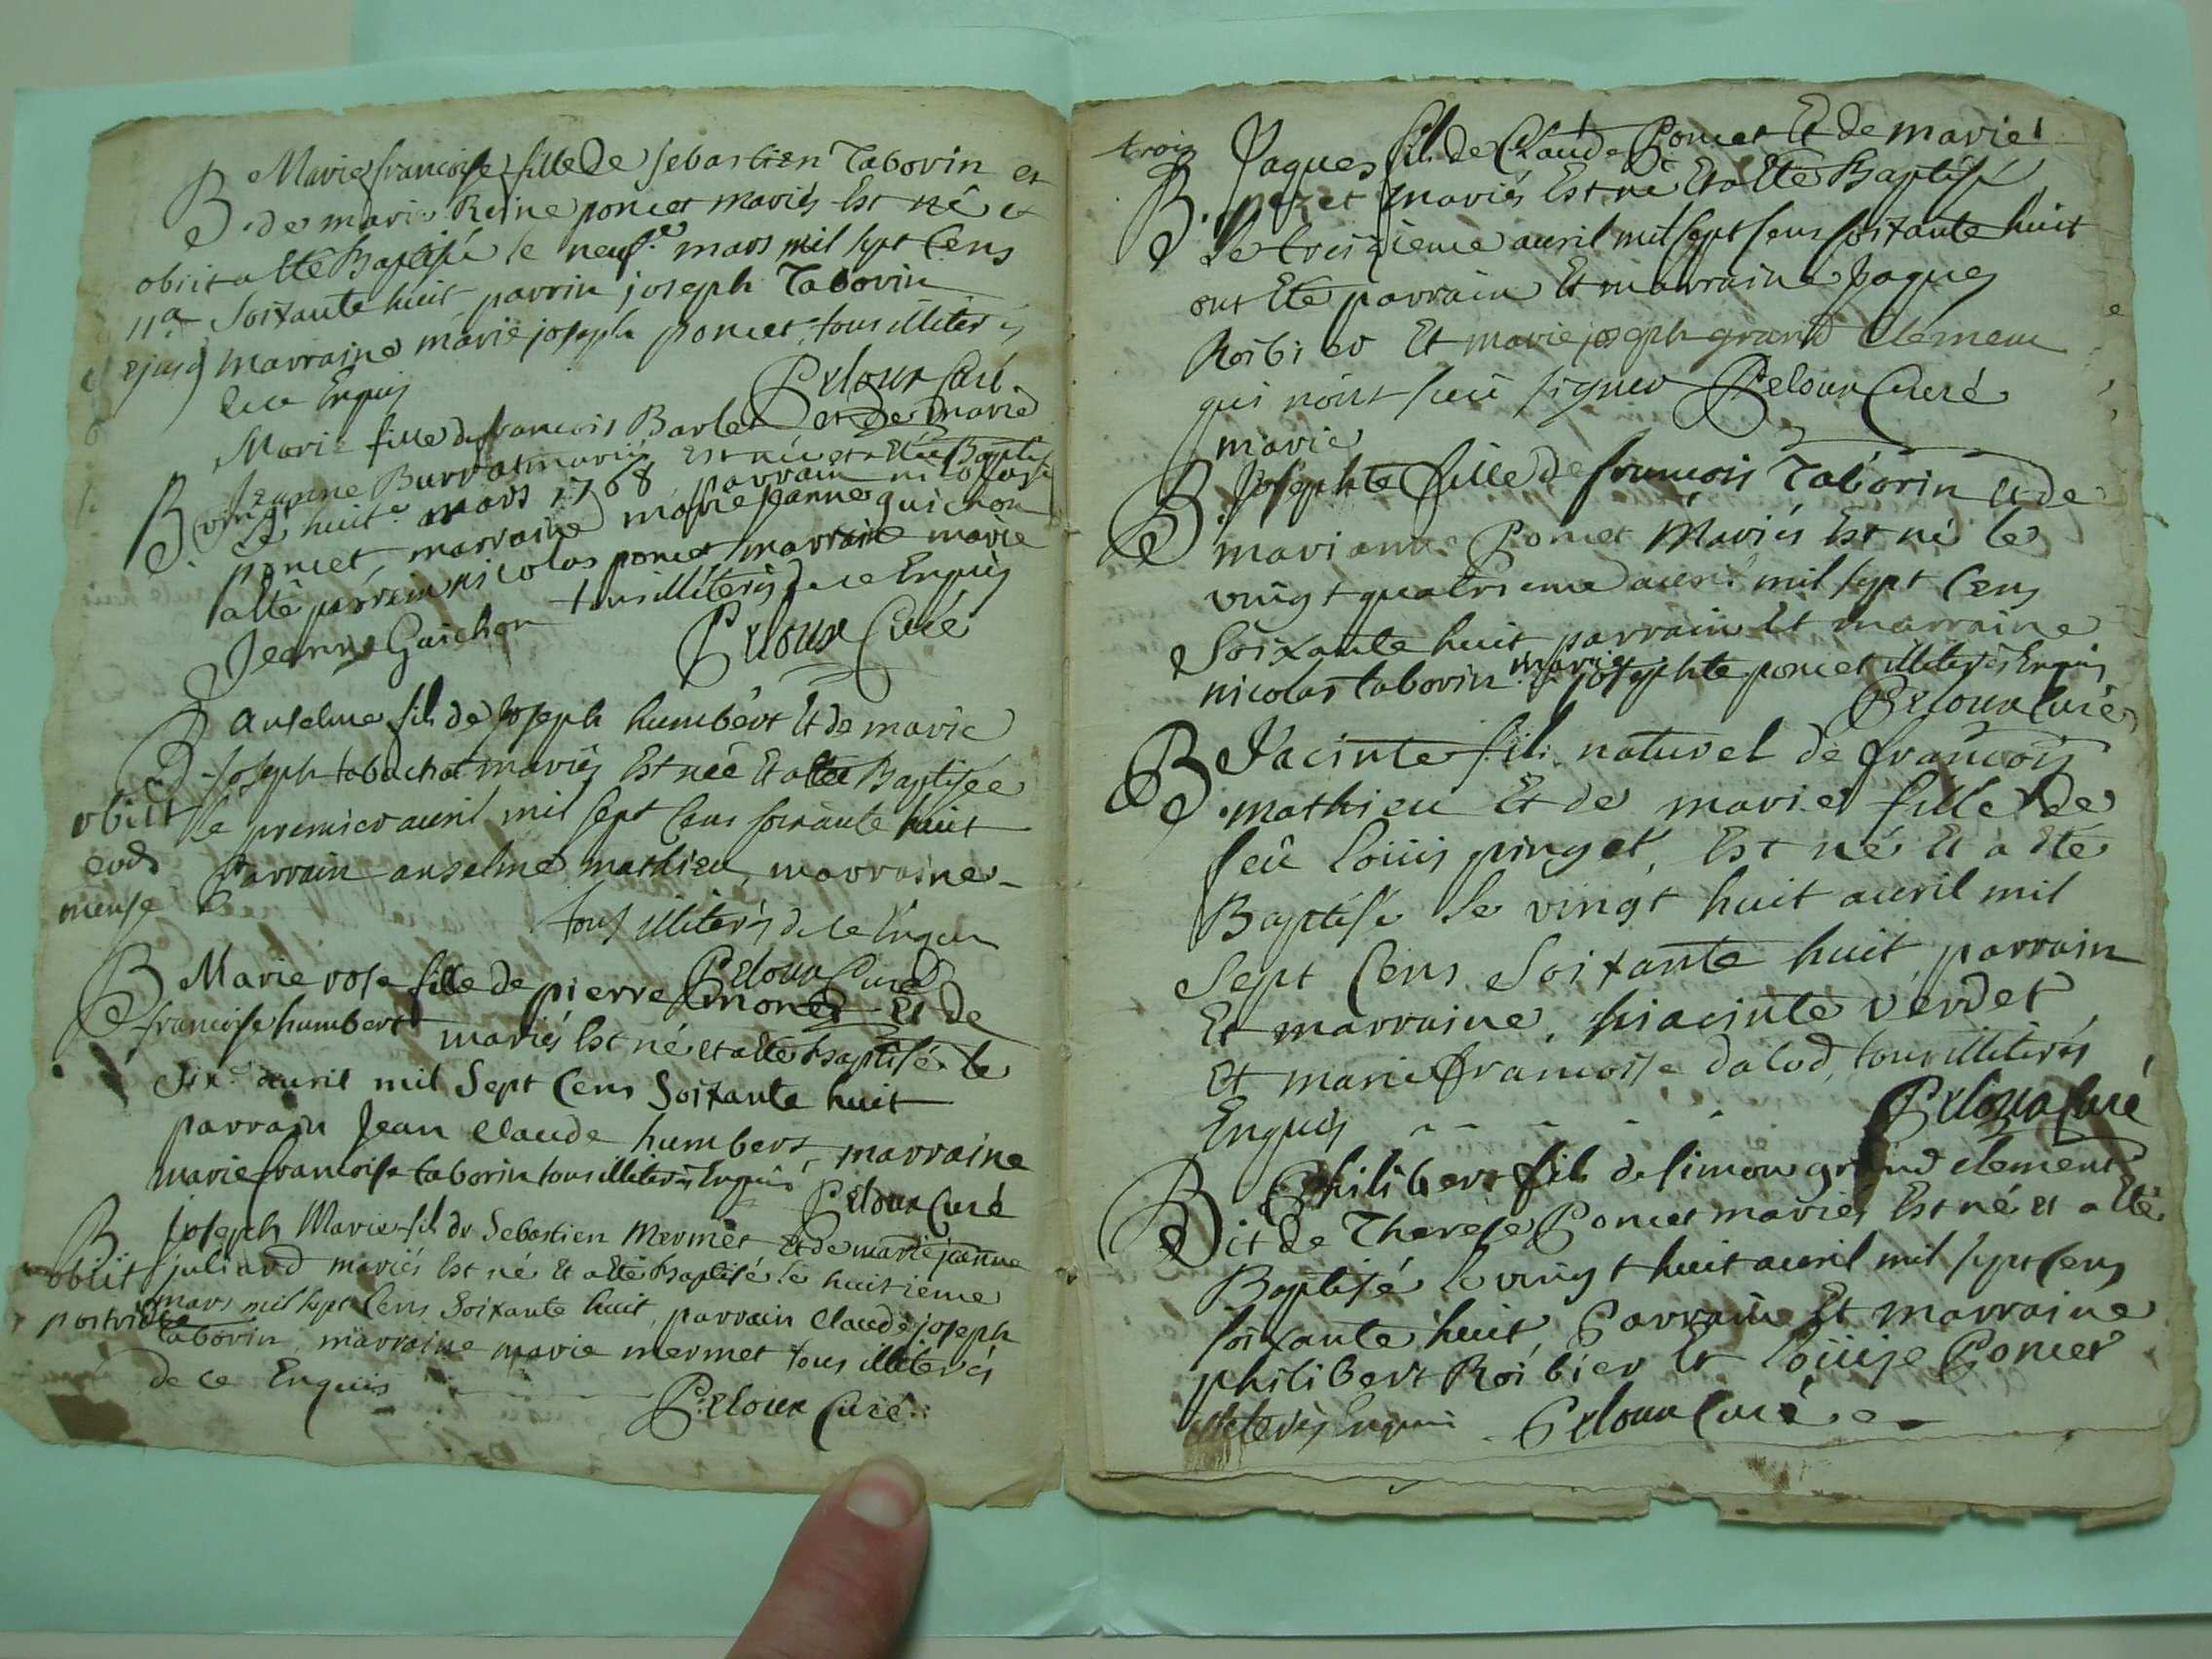 B Marie francoise fille de sebastien Taborin et
de marie Reine poncet mariés Est né et
obiit a Eté Baptisé le neuf.e mars mil sept Cens
11a Soixante huit parrin joseph Taborin
ejusd marraine marie joseph poncet, tous illiterés
de ce Enquis
Peloux Curé
Marie fille de francois Barlet et de marie
B Jeanne Burrat mariés Est née et a Eté Baptisé
vingt
le huit.e mars 1768 parrain nicolas
poncet, marraine marie jeanne guichon
a Eté parrein nicolas poncet marraine marie
Jeanne Guichon tous illiterés de ce Enquis
Peloux Curé
B Anselme fils de Joseph humbert Et de marie
Joseph tabachat mariés Est née Et a Eté Baptisée
obiit le premier auril mil sept Cens soixante huit
eod Parrain anselme mathieu, marraine -
mense
tous illiterés de ce Enquis
Peloux Curé
B Marie rose fille de pierre monet Et de
francoise humbert mariés Est né et a Eté baptisé le
Six.e auril mil Sept Cens Soixante huit
parrain Jean Claude humbert, marraine
marie francoise taborin tous illiterés Enquis
Peloux Curé
B joseph Marie fil de Sebastien Mermet Et de marie jeanne
obiit juliard mariés Est né Et a Eté Baptisé le huitieme
mars mil sept Cens Soixante huit, parrain Claude joseph
postridie taborin, marraine marie mermet tous illiterés
de ce Enquis
Peloux Curé
trois Jaques fils de Claude Poncet Et de marie
B. mariés Est né Et a Eté Baptisé
le treizieme auril mil sept sens soixante huit
ont Eté parrain Et marraine Jaques
Roibier Et marie joseph grand Clement
qui n'ont sceû signer Peloux Curé
marie
B. Josephte fille de francois Taborin Et de
marianne Poncet Mariés Est né le
vingt quatrieme auril mil sept Cens
Soixante huit parrain Et marraine
nicolas taborin marie josephte poncet illiterés Enquis
Peloux Curé
B Jacinte fils naturel de francois
mathieu Et de marie fille de
feû Loüis pinget, Est né Et à Eté
Baptisé le vingt huit auril mil
Sept Cens Soixante huit, parrain
Et marraine, hiacinte verdet
Et marie francoise dalod, tous illiterés
Enquis
Peloux Curé
B Philibert fils de simon grand clement
et de Therese Poncet mariés Est né et a Eté
Baptisé le vingt huit auril mil sept Cens
soixante huit, Parrain Et marraine
philibert Roibier Et Loüise Poncet
illiterés Enquis Peloux Curé